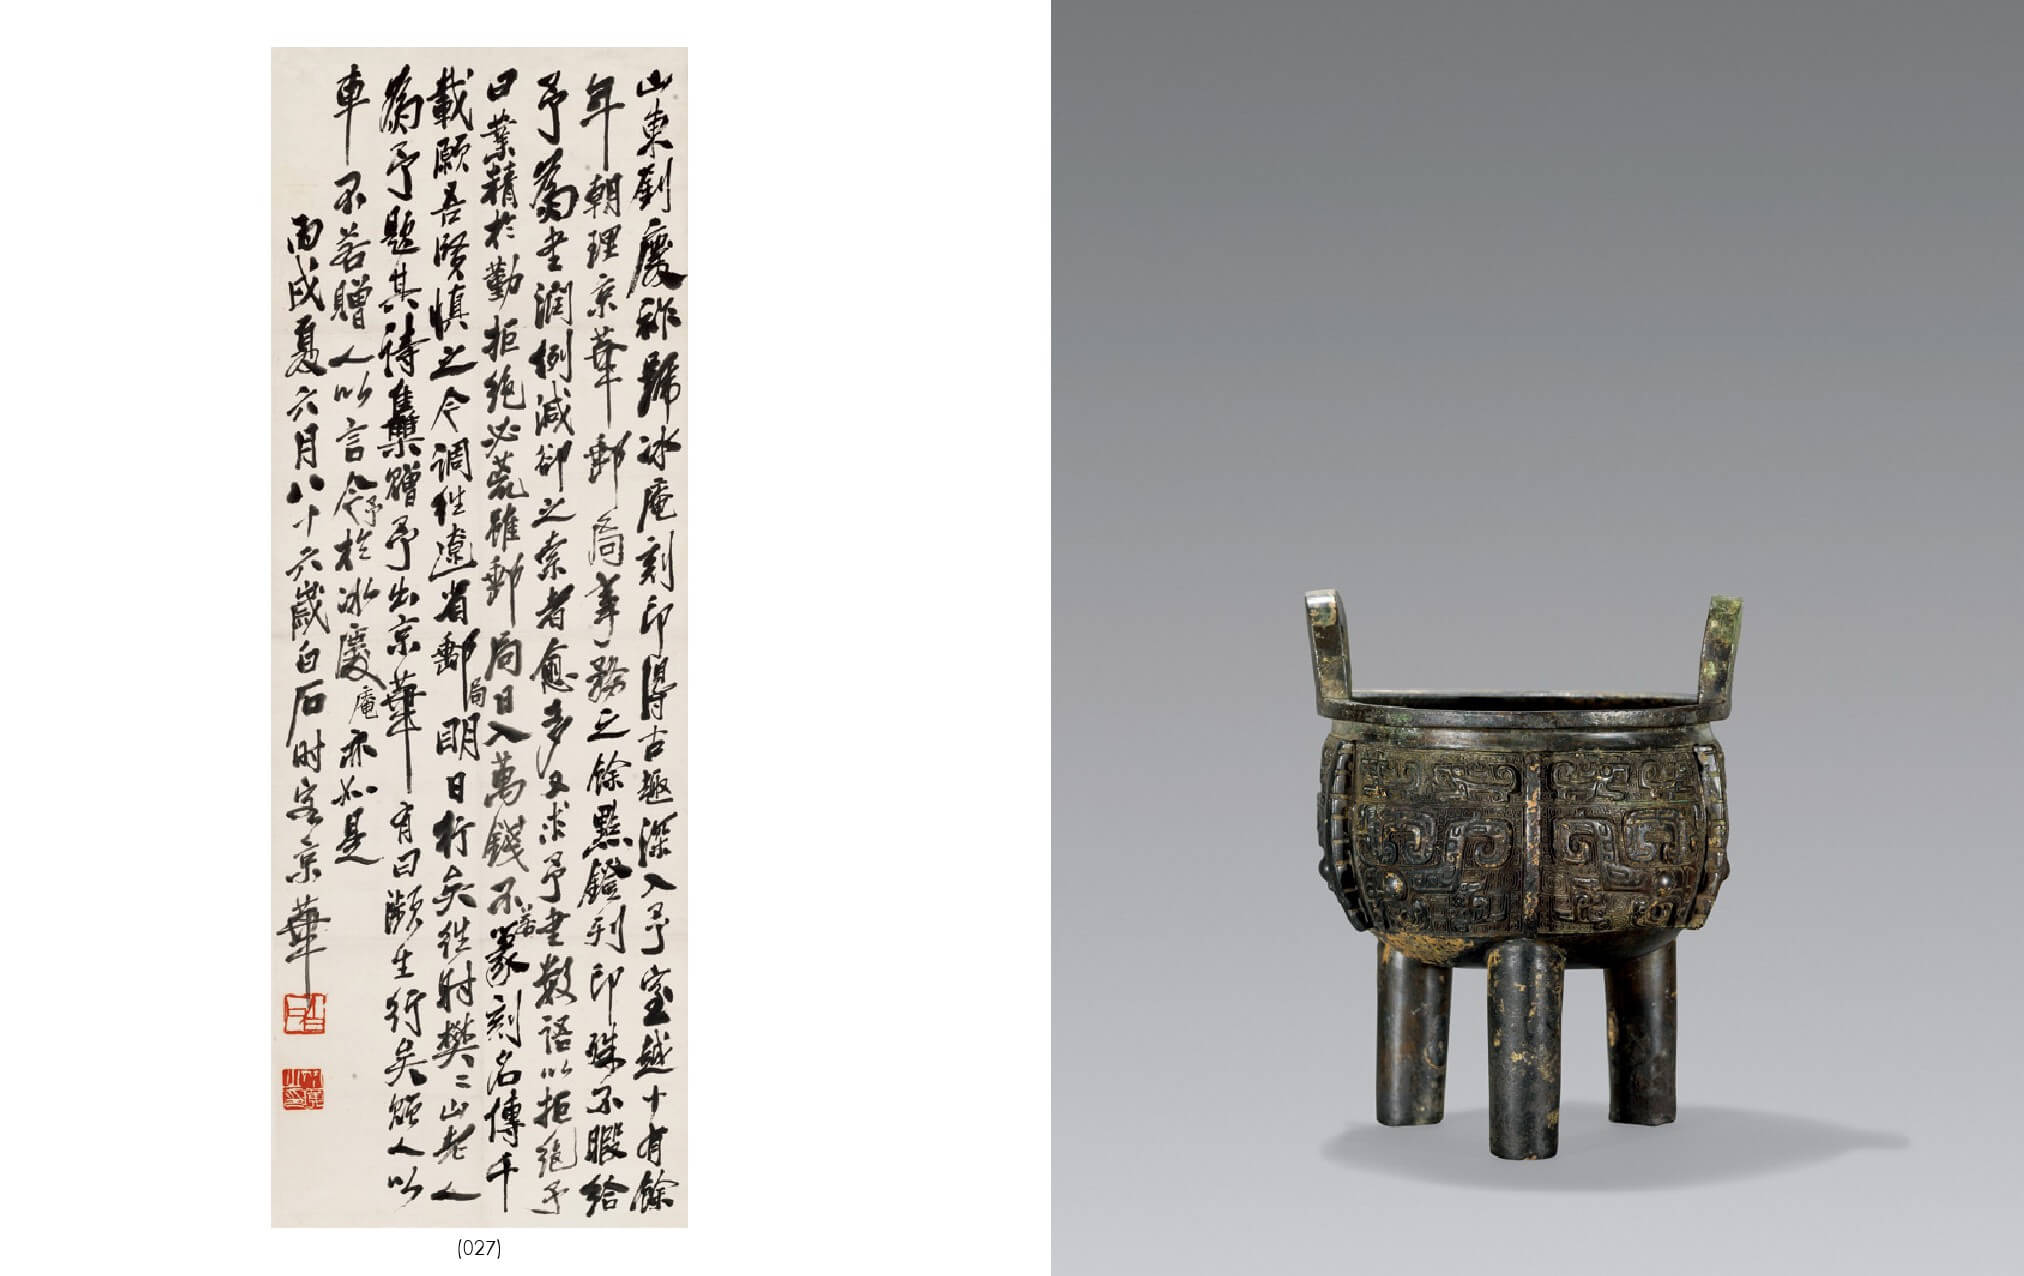 山東劉慶祚號冰庵刻印得古趣深入予室越十有餘
年朝理京華郵局事務之餘點鐙刊印殊不暇給
予為書潤例減卻之索者愈多又求予書數語以拒絕予
曰業精於勤拒絕必荒雖郵局日入萬錢不若篆刻名傳千
載願吾賢慎之今調往遼省郵局明日行矣往時樊〻山老人
為予題其詩集贈予出京華有曰瀕生行矣贈人以
車不若贈人以言今予於冰慶庵亦如是
丙戌夏六月八十六歲白石时客京華
(027)